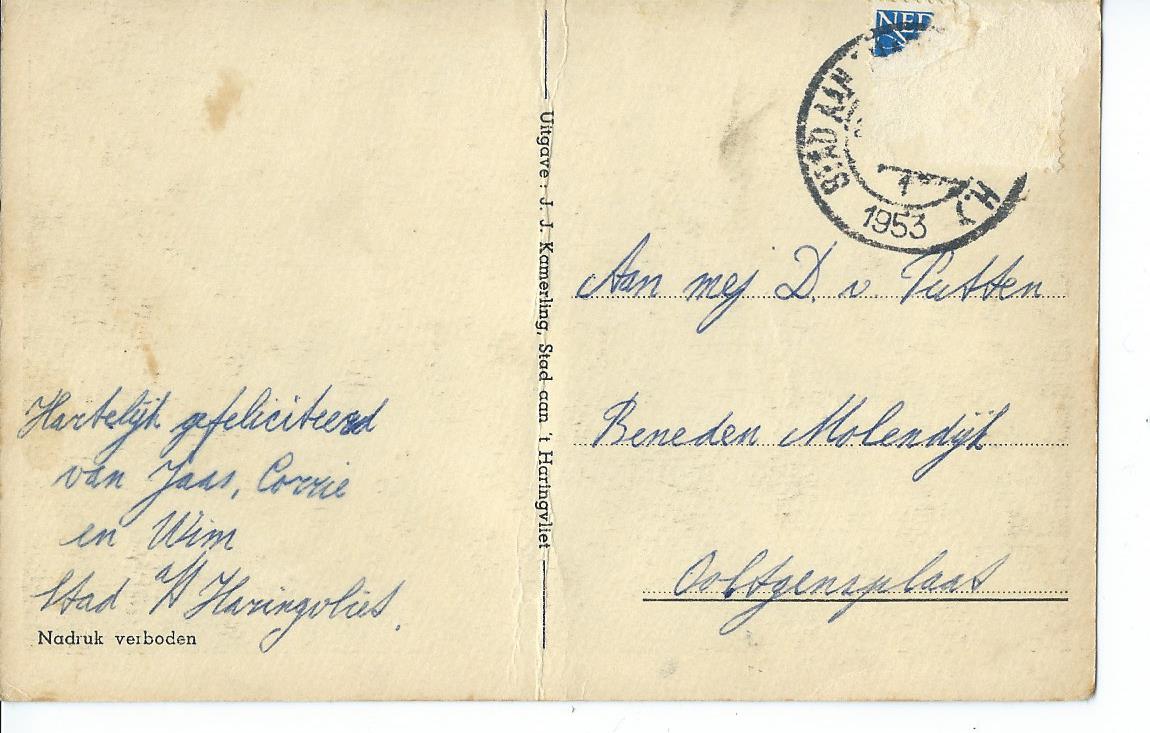 NED
STAD AAN H.)
1953
Uitgave : J. J. Kamerling, Stad aan 't Haringvliet
Aan mej D. v. Putten
Beneden Molendijk
Ooltgensplaat
Hartelijk gefeliciteerd
van Jaas, Corrie
en Wim
Stad a/h Haringvliet.
Nadruk verboden